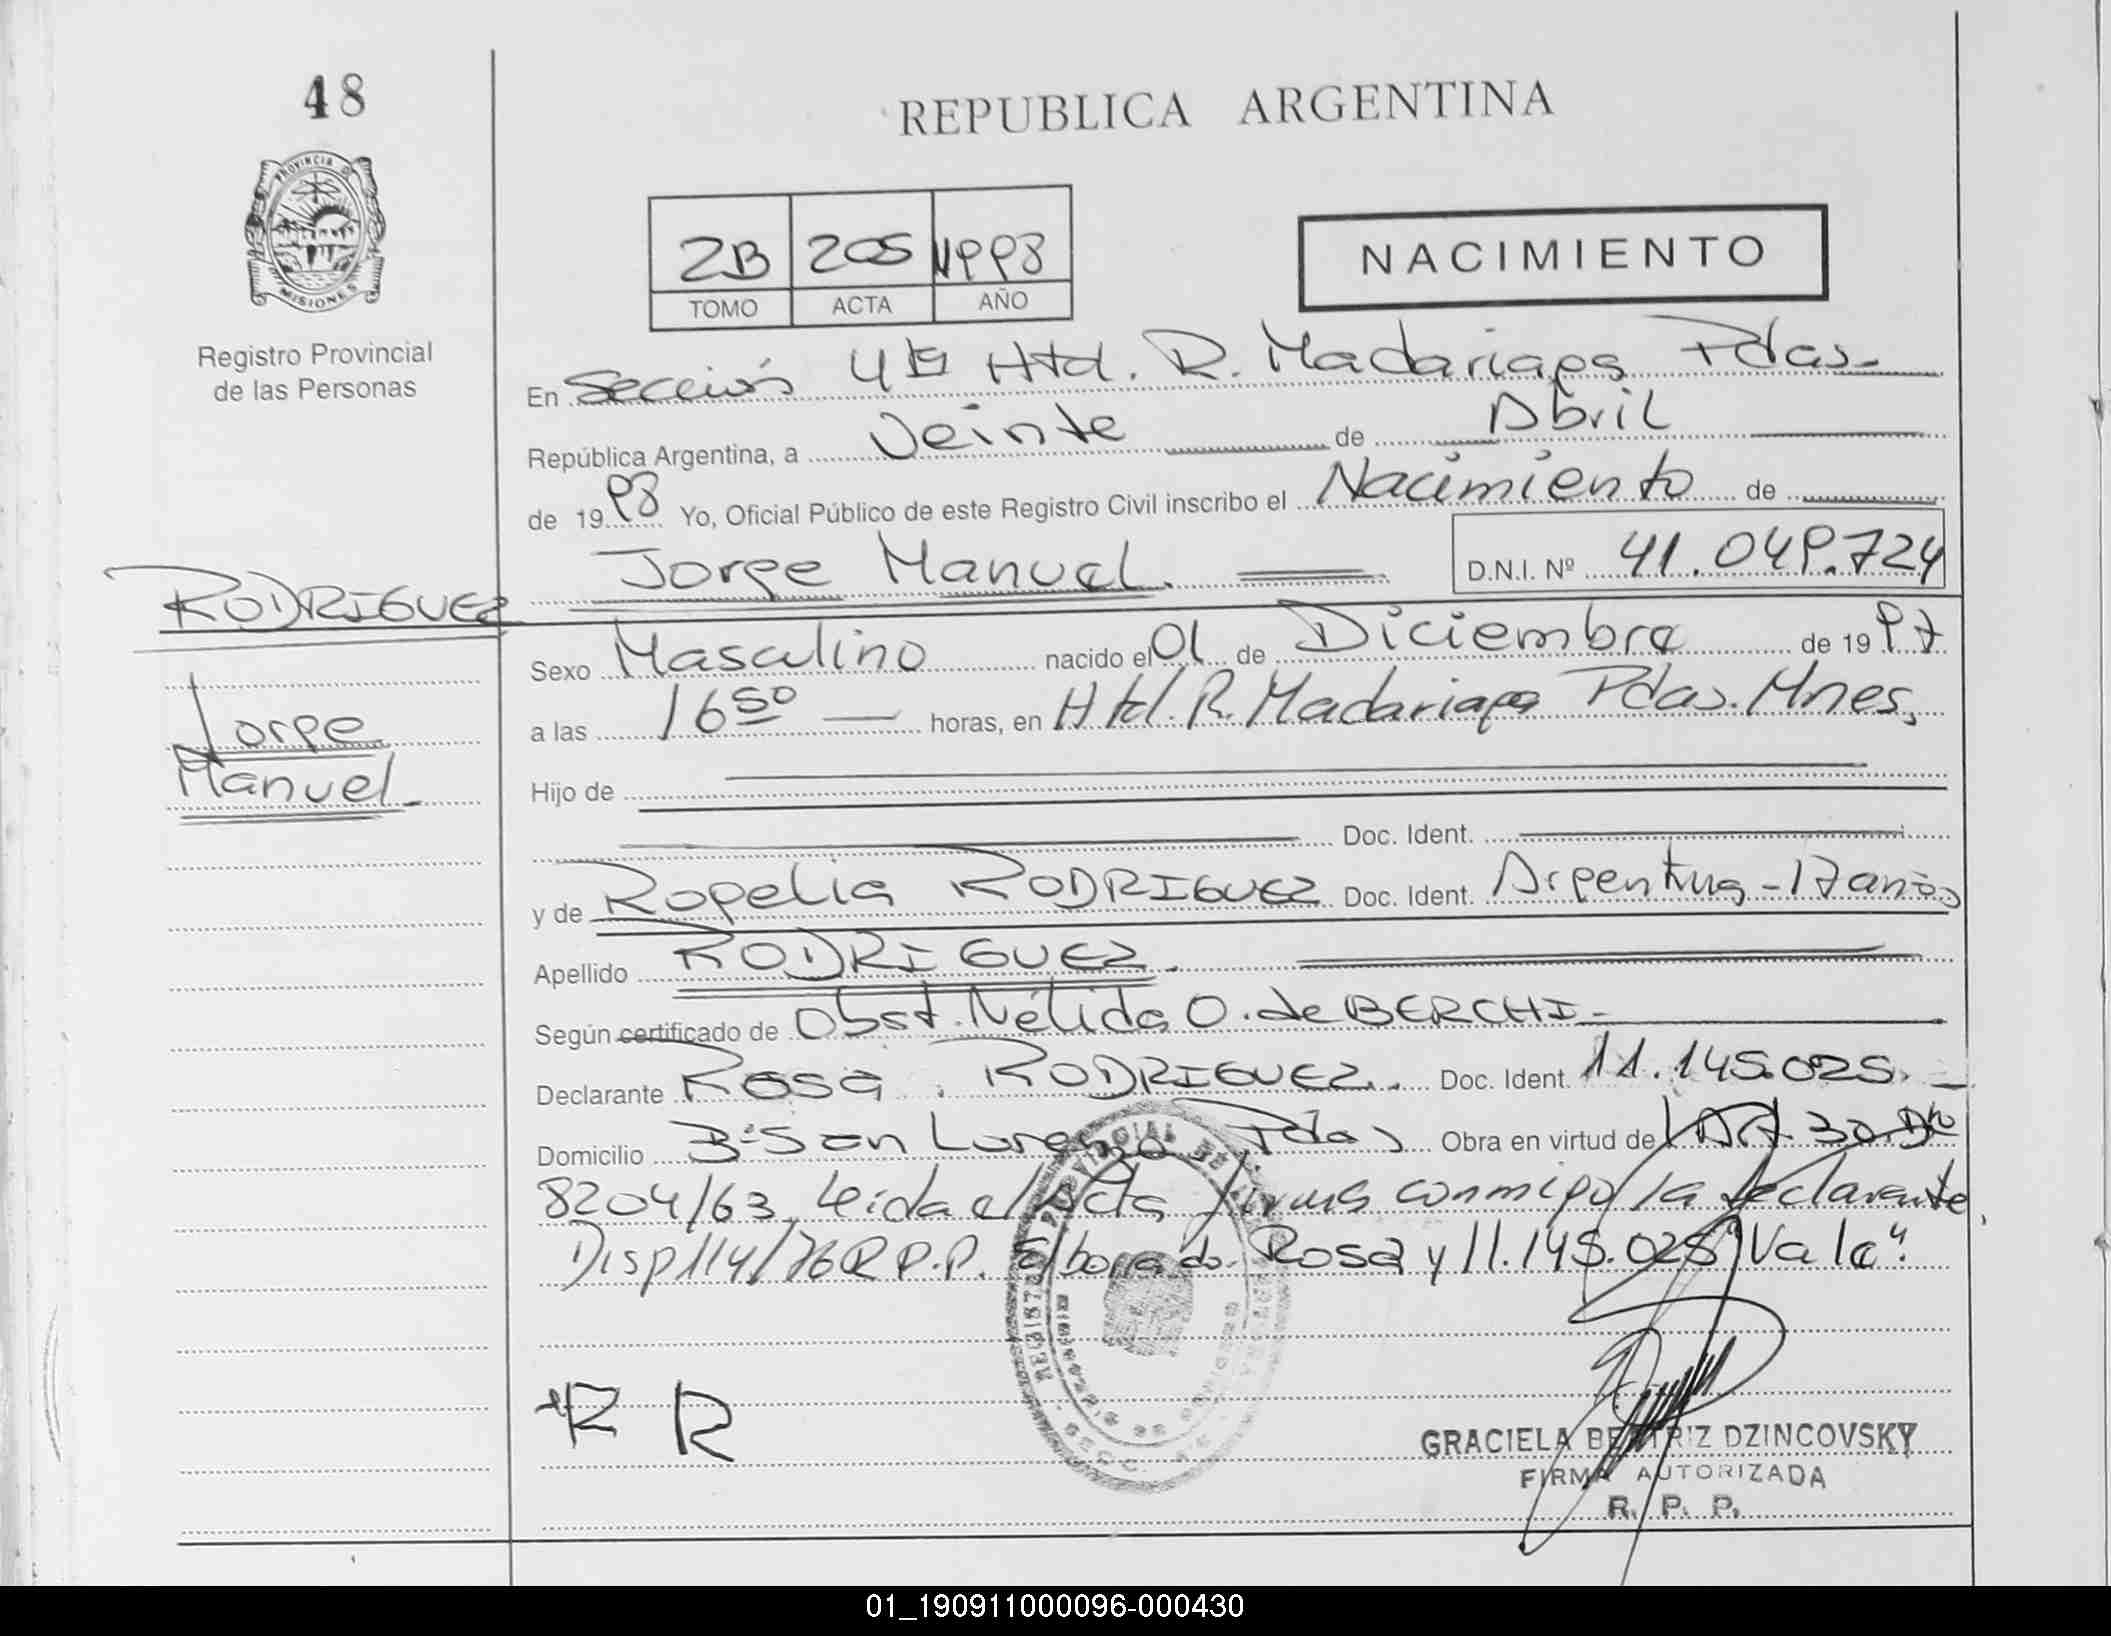 48
REPUBLICA ARGENTINA
PROVINCIA DE
MISIONES
Registro Provincial
de las Personas
2B 205 1998
TOMO ACTA AÑO
NACIMIENTO
En Sección 4ta Htal. R. Madariaga Pdas-
República Argentina, a Veinte de Abril
de 1998 Yo, Oficial Público de este Registro Civil inscribo el Nacimiento de
Jorge Manuel. D.N.I. Nº 41.049.724
RODRIGUEZ
Jorge
Manuel.
Sexo Masculino nacido el 01 de Diciembre de 1997
a las 16 50 horas, en Htal. R. Madariaga Pdas. Mnes,
Hijo de
Doc. Ident.
y de Rogelia RODRIGUEZ Doc. Ident. Argentina - 17 años
Apellido RODRIGUEZ.
Según certificado de Obst. Nélida O. de BERCHI-
Declarante Rosa RODRIGUEZ. Doc. Ident. 11.145.025.-
Domicilio Bº San Lorenzo Pdas Obra en virtud de Art. 30. Dto
8204/63 Leida el Acta firma conmigo la declarante,
Disp 114/76 R.P.P. E/borrado. Rosa y 11.145.025 "Vale".
R R
GRACIELA BEATRIZ DZINCOVSKY
FIRMA AUTORIZADA
R. P. P.
01_190911000096-000430